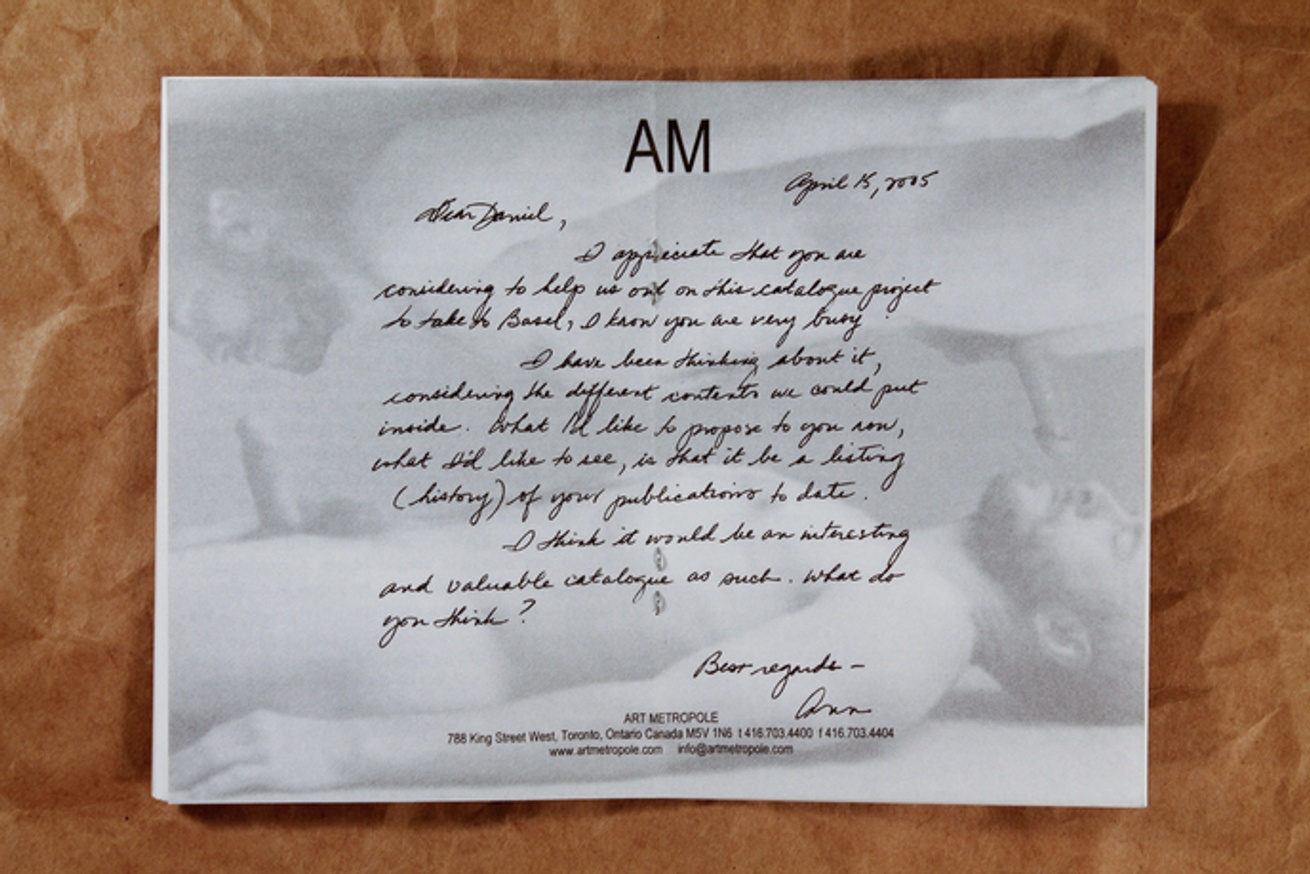 AM
April 15, 2005
Dear Daniel,
I appreciate that you are
considering to help us out on this catalogue project
to take to Basel, I know you are very busy.
I have been thinking about it,
considering the different contents we could put
inside. What I'd like to propose to you now,
what I'd like to see, is that it be a listing
(history) of your publications to date.
I think it would be an interesting
and valuable catalogue as such. What do
you think?
Best regards –
Ann
ART METROPOLE
788 King Street West, Toronto, Ontario Canada M5V 1N6 t 416.703.4400 f 416.703.4404
www.artmetropole.com info@artmetropole.com